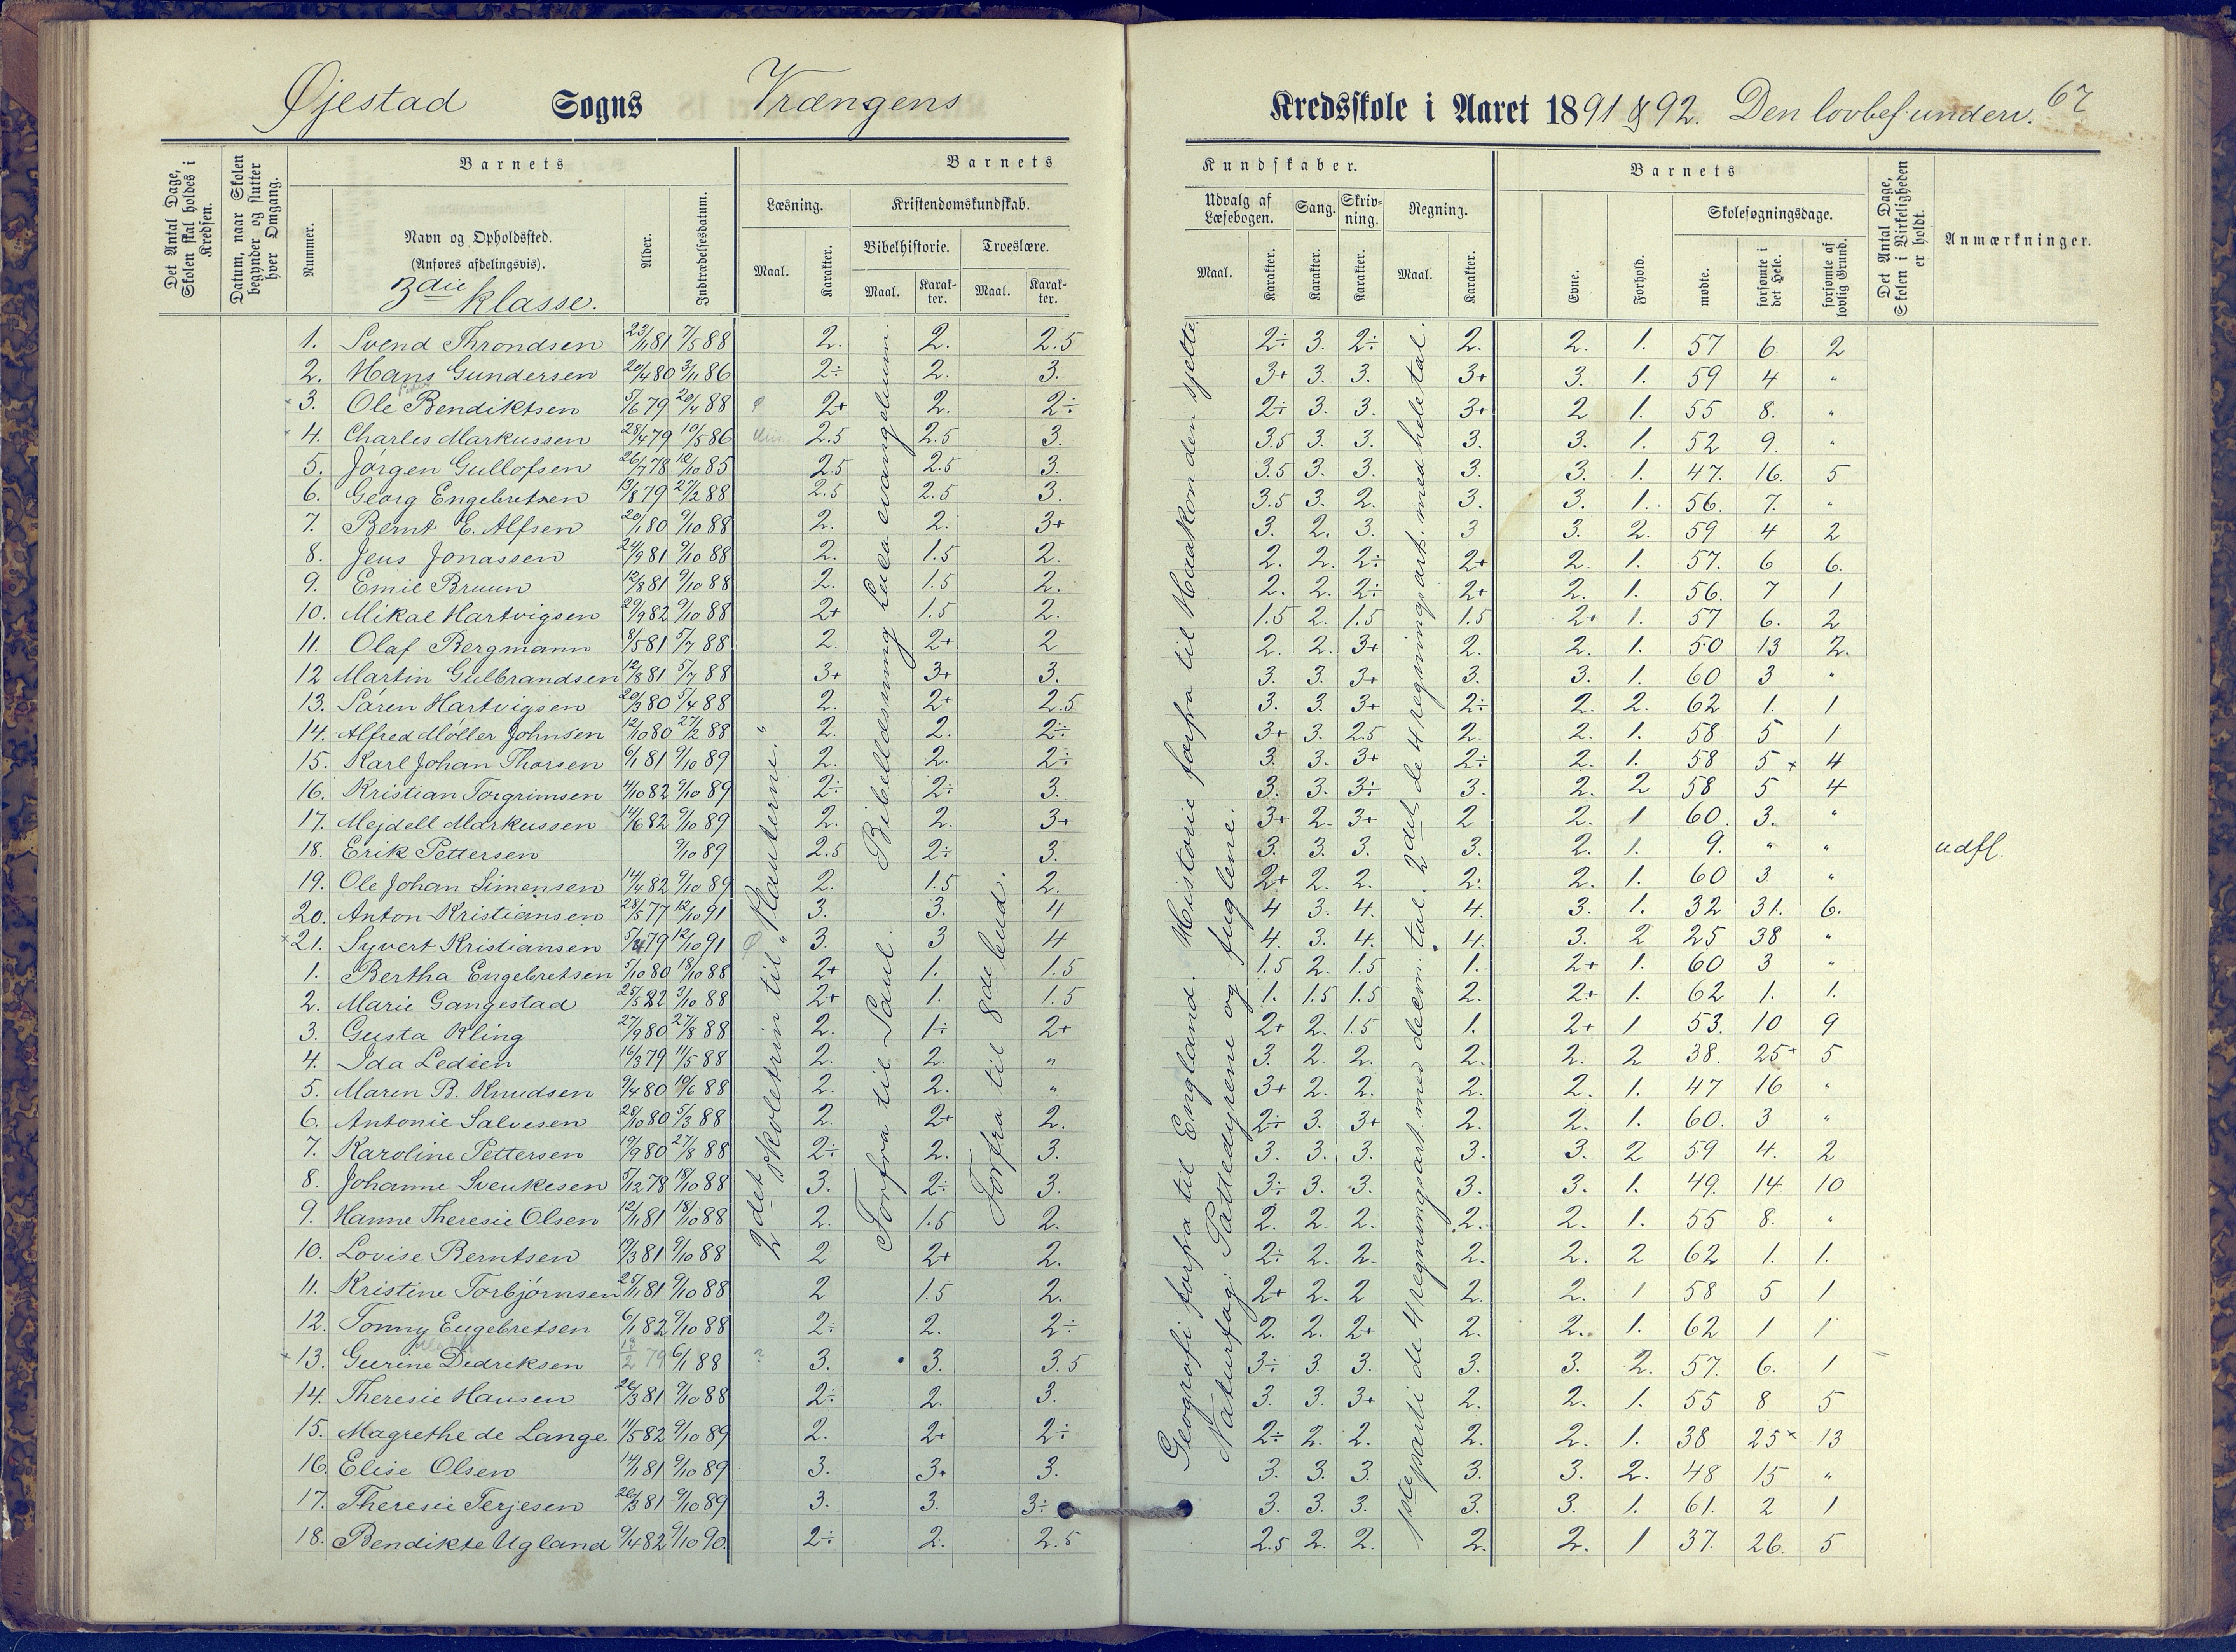 Øjestad Sogns Vrængens Kredsskole i Aaret 1891 & 92. Den lovbef. underv. 67
Det Antal Dage, Skolen skal holdes i Kredsen.
Datum, naar Skolen begynder og slutter hver Omgang.
Barnets
Nummer.
Navn og Opholdssted.
(Anføres afdelingsvis).
3die klasse.
Alder.
Indtrædelsesdatum.
Barnets Kundskaber.
Læsning.
Maal. Karakter.
Kristendomskundskab.
Bibelhistorie. Troeslære.
Maal. Karakter. Maal. Karakter.
Udvalg af Læsebogen. Sang. Skrivning. Regning.
Maal. Karakter. Karakter. Karakter. Maal. Karakter.
Barnets
Evne. Forhold.
Skolesøgningsdage.
mødte. forsømte i det Hele. forsømte af lovlig Grund.
Det Antal Dage, Skolen i Virkeligheden er holdt.
Anmærkninger.
1. Svend Throndsen 22/11 81 7/5 88 2. 2. 2.5 2÷ 3. 2÷ 2. 2. 1. 57 6 2
2. Hans Gundersen 20/4 80 3/11 86 2÷ 2. 3. 3+ 3. 3. 3+ 3. 1. 59 4 "
3. Ole Bendiktsen 5/6 79 20/4 88 2+ 2. 2÷ 2÷ 3. 3. 3+ 2 1. 55 8. "
4. Charles Markussen 28/4 79 10/5 86 2.5 2.5 3. 3.5 3. 3. 3. 3. 1. 52 9. "
5. Jørgen Gullofsen 26/7 78 12/10 85 2.5 2.5 3. 3.5 3. 3. 3. 3. 1. 47. 16. 5
6. Georg Engebretsen 13/8 79 27/2 88 2.5 2.5 3. 3.5 3. 2. 3. 3. 1. 56. 7. "
7. Bernt E. Alfsen 20/1 80 9/10 88 2. 2. 3+ 3. 2. 3. 3 3. 2. 59 4 2
8. Jens Jonassen 24/9 81 9/10 88 2. 1.5 2. 2. 2. 2÷ 2+ 2. 1. 57. 6 6.
9. Emil Bruun 12/8 81 9/10 88 2. 1.5 2. 2. 2. 2÷ 2+ 2. 1. 56. 7 1
10. Mikal Hartvigsen 29/9 82 9/10 88 2+ 1.5 2. 1.5 2. 1.5 1.5 2+ 1. 57 6. 2
11. Olaf Bergmann 8/5 81 5/7 88 2. 2+ 2 2. 2. 3+ 2. 2. 1. 50 13 2.
12 Martin Gulbrandsen 12/8 81 5/7 88 3+ 3+ 3. 3. 3. 3+ 3. 3. 1. 60 3 "
13. Søren Hartvigsen 20/3 80 5/4 88 2. 2+ 2.5 3. 3. 3+ 2÷ 2. 2. 62 1. 1
14. Alfred Møller Johnsen 12/10 80 27/2 88 2. 2. 2÷ 3+ 3. 2.5 2. 2. 1. 58 5 1
15. Karl Johan Thorsen 6/1 81 9/10 89 2. 2. 2÷ 3. 3. 3+ 2÷ 2. 1. 58 5 × 4
16. Kristian Torgrimsen 4/10 82 9/10 89 2÷ 2÷ 3. 3. 3. 3÷ 3. 2. 2 58 5 4
17. Mejdell Markussen 14/6 82 9/10 89 2. 2. 3+ 3+ 2. 3+ 2 2. 1 60. 3. "
18. Erik Pettersen 9/10 89 2.5 2÷ 3. 3. 3. 3. 3. 2. 1. 9. " " udfl.
19. Ole Johan Simensen 14/4 82 9/10 89 2. 1.5 2. 2+ 2. 2. 2. 2. 1. 60 3 "
20. Anton Kristiansen 28/5 77 12/10 91 3. 3. 4 4 3. 4. 4. 3. 1. 32 31. 6.
21. Syvert Kristiansen 5/4 79 12/10 91 3. 3 4 4. 3. 4. 4. 3. 2 25 38 "
1. Bertha Engebretsen 5/10 80 18/10 88 2+ 1. 1.5 1.5 2. 1.5 1. 2+ 1. 60 3 "
2. Marie Gangestad 25/5 82 3/10 88 2+ 1. 1.5 1. 1.5 1.5 2. 2+ 1. 62 1. 1.
3. Gusta Kling 27/9 80 27/8 88 2. 1÷ 2+ 2+ 2. 1.5 1. 2+ 1 53. 10 9
4. Ida Ledsen 16/3 79 11/5 88 2. 2. " 3. 2. 2. 2. 2. 2 38. 25× 5
5. Maren B. Knudsen 9/4 80 10/6 88 2. 2. " 3+ 2. 2. 2. 2. 1. 47 16 "
6. Antonie Salvesen 28/10 80 5/3 88 2. 2+ 2. 2÷ 3. 3+ 2. 2. 1. 60. 3 "
7. Karoline Pettersen 19/9 80 27/8 88 2÷ 2. 3. 3. 3. 3. 3. 3. 2 59 4. 2
8. Johanne Svenkesen 5/12 78 18/10 88 3. 2÷ 3. 3÷ 3. 3. 3. 3. 1. 49. 14. 10
9. Hanne Theresie Olsen 12/11 81 18/10 88 2. 1.5 2. 2. 2. 2. 2. 2. 1. 55 8. "
10. Lovise Berntsen 19/3 81 9/10 88 2 2+ 2. 2÷ 2. 2. 2. 2. 2 62 1. 1.
11. Kristine Torbjørnsen 25/11 81 9/10 88 2 1.5 2. 2+ 2. 2 2. 2. 1 58 5 1
12. Tonny Engebretsen 6/1 82 9/10 88 2÷ 2. 2÷ 2. 2. 2+ 2. 2. 1. 62 1 1
13. Gurine Dedreksen 13/2 79 6/1 88 3. 3. 3.5 3÷ 3. 3. 3. 3. 2. 57. 6. 1
14. Theresie Hansen 26/3 81 9/10 88 2÷ 2. 3. 3. 3. 3+ 2. 2. 1. 55 8 5
15. Magrethe de Lange 11/5 82 9/10 89 2. 2+ 2÷ 2÷ 2. 2. 2. 2. 1. 38 25× 13
16. Elise Olsen 14/1 81 9/10 89 3. 3+ 3. 3. 3. 3. 3. 3. 2. 48 15 "
17. Theresie Terjesen 26/3 81 9/10 89 3. 3. 3÷ 3. 3. 3. 3. 3. 1. 61. 2 1
18. Bendikte Ugland 9/4 82 9/10 90. 2÷ 2. 2.5 2.5 2. 2. 2. 2. 1 37. 26. 5
2det skoletrin til "Planterne."
Forfra til Saul. Bibellæsning Lucæ evangelium.
Forfra til 8de bud.
Geografi forfra til England. Historie forfra til Haakon den sjette.
Naturfag: Pattedyrene og fuglene.
1ste parti de 4 regningsart. med decim. tal. 2det de 4 regningsart. med hele tal.